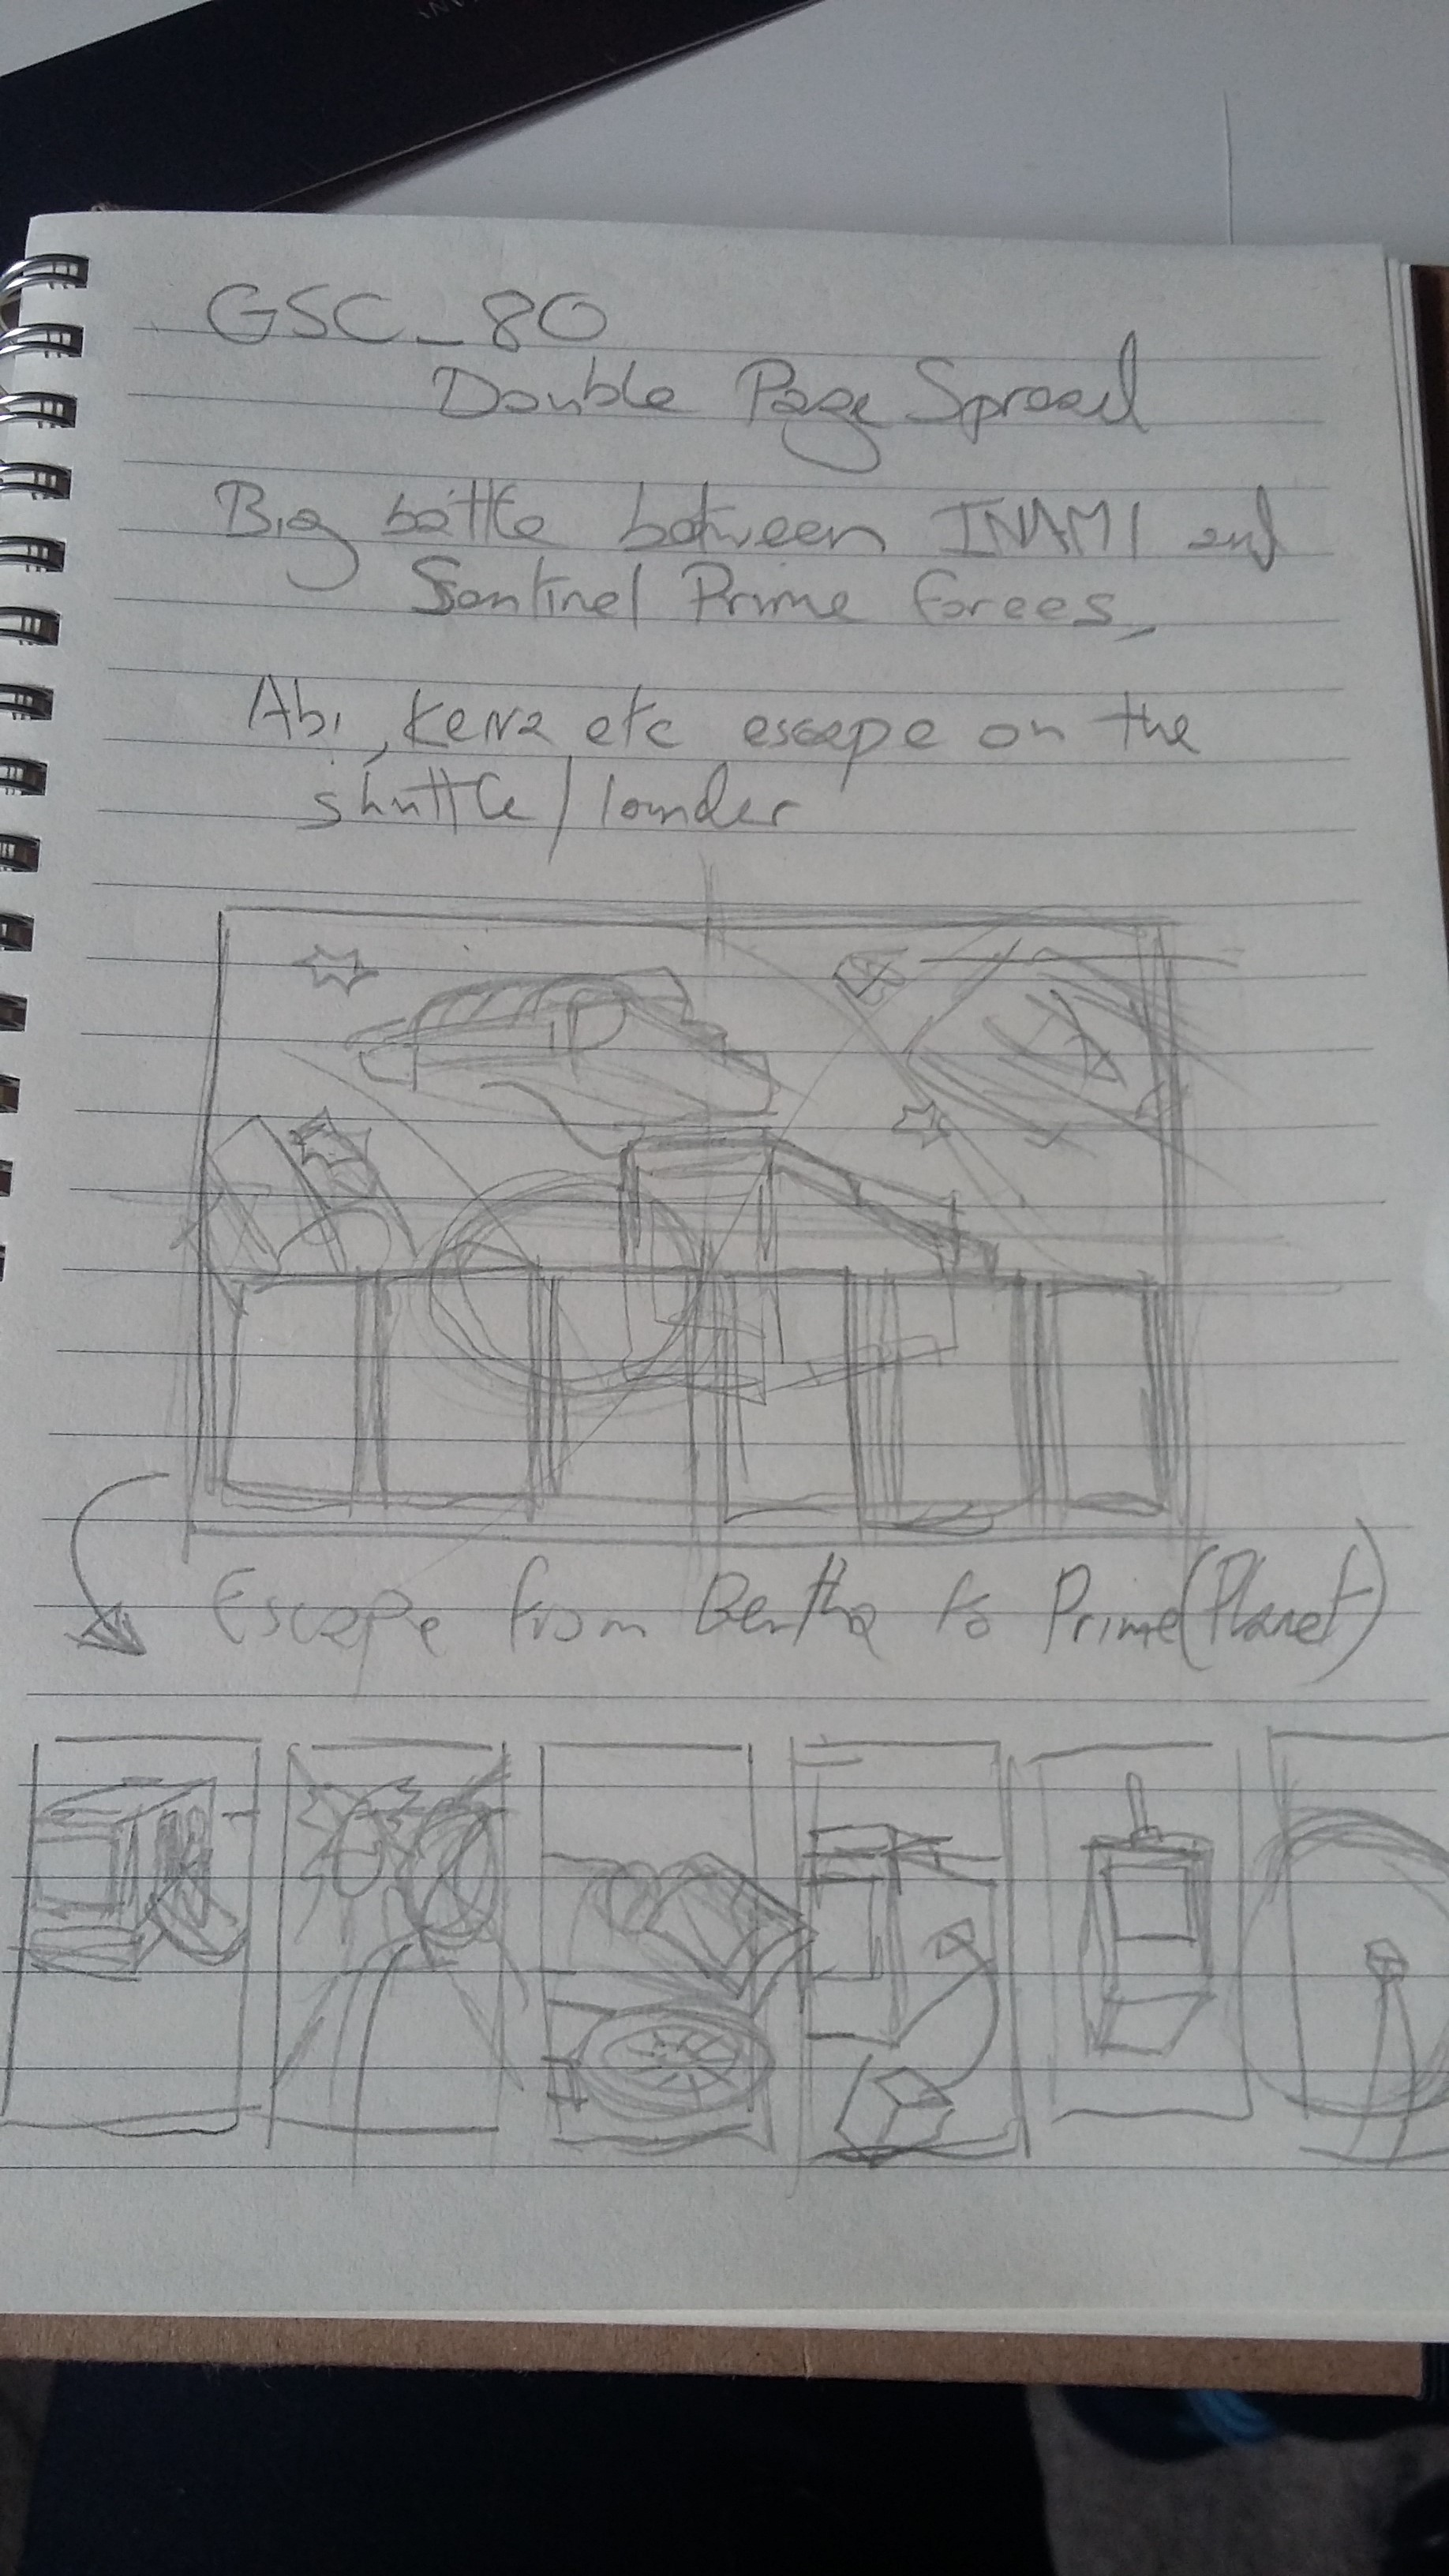 GSC_80
Double Page Spread
Big battle between INAMI and
Sentinel Prime forces,
Abi, Kena etc escape on the
shuttle / lander
Escape from Bertha to Prime (Planet)